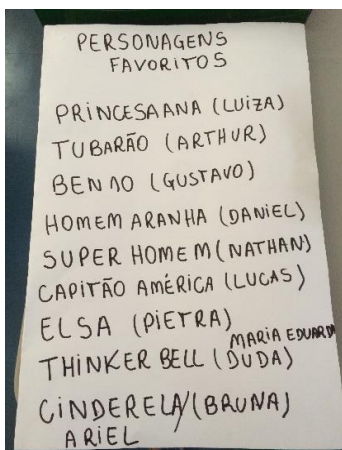 PERSONAGENS
FAVORITOS
PRINCESA ANA (LUIZA)
TUBARÃO (ARTHUR)
BEN 10 (GUSTAVO)
HOMEM ARANHA (DANIEL)
SUPER HOMEM (NATHAN)
CAPITÃO AMÉRICA (LUCAS)
ELSA (PIETRA)
MARIA EDUARDA
THINKER BELL (DUDA)
CINDERELA/(BRUNA)
ARIEL